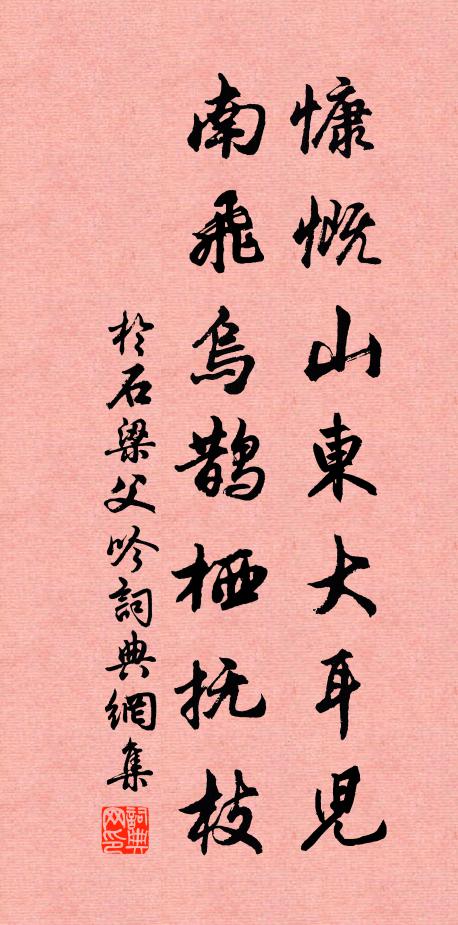 慷慨山東大耳児
南飛烏鵲栖抚枝
於石梁父吟詞典網集
詞典网印